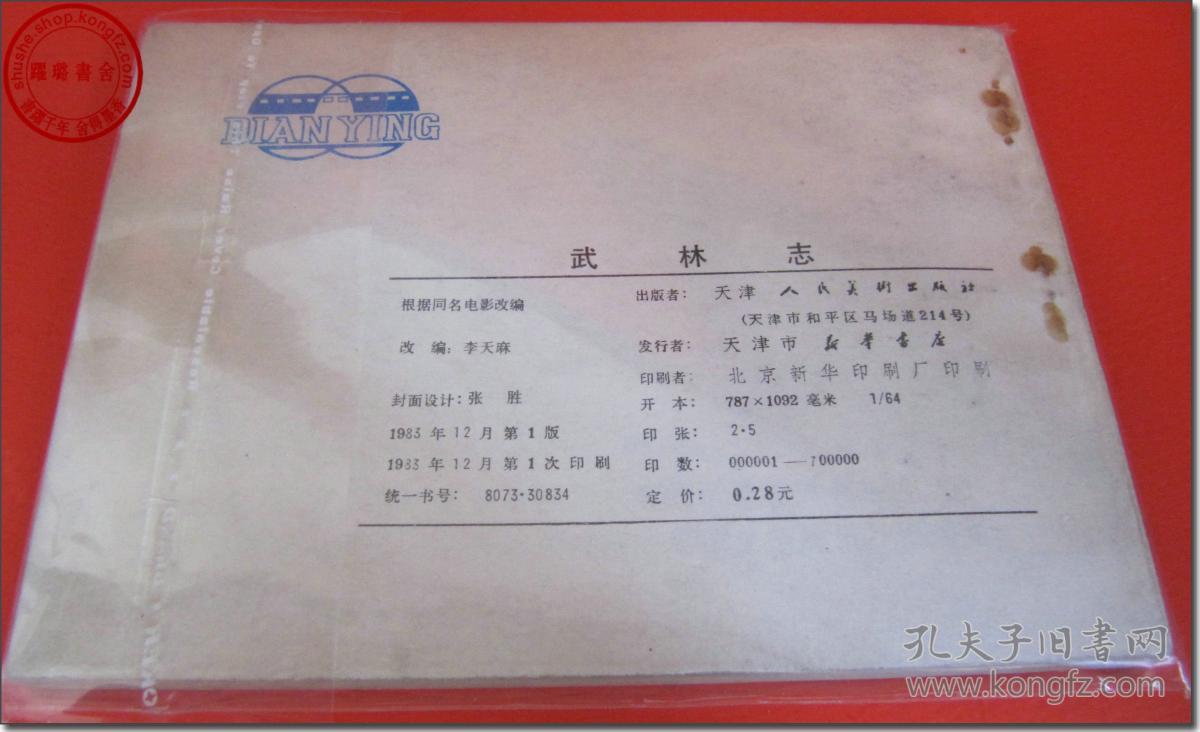 shushe.shop.kongfz.com
躍璐書舍
書躍千年 舍得墨香
DIAN YING
武林志
根据同名电影改编
改编：李天麻
封面设计：张胜
1983年12月第1版
1983年12月第1次印刷
统一书号：8073·30834
出版者：天津人民美术出版社
(天津市和平区马场道214号)
发行者：天津市新华书店
印刷者：北京新华印刷厂印刷
开本：787×1092毫米 1/64
印张：2·5
印数：000001—700000
定价：0.28元
孔夫子旧书网
www.kongfz.com